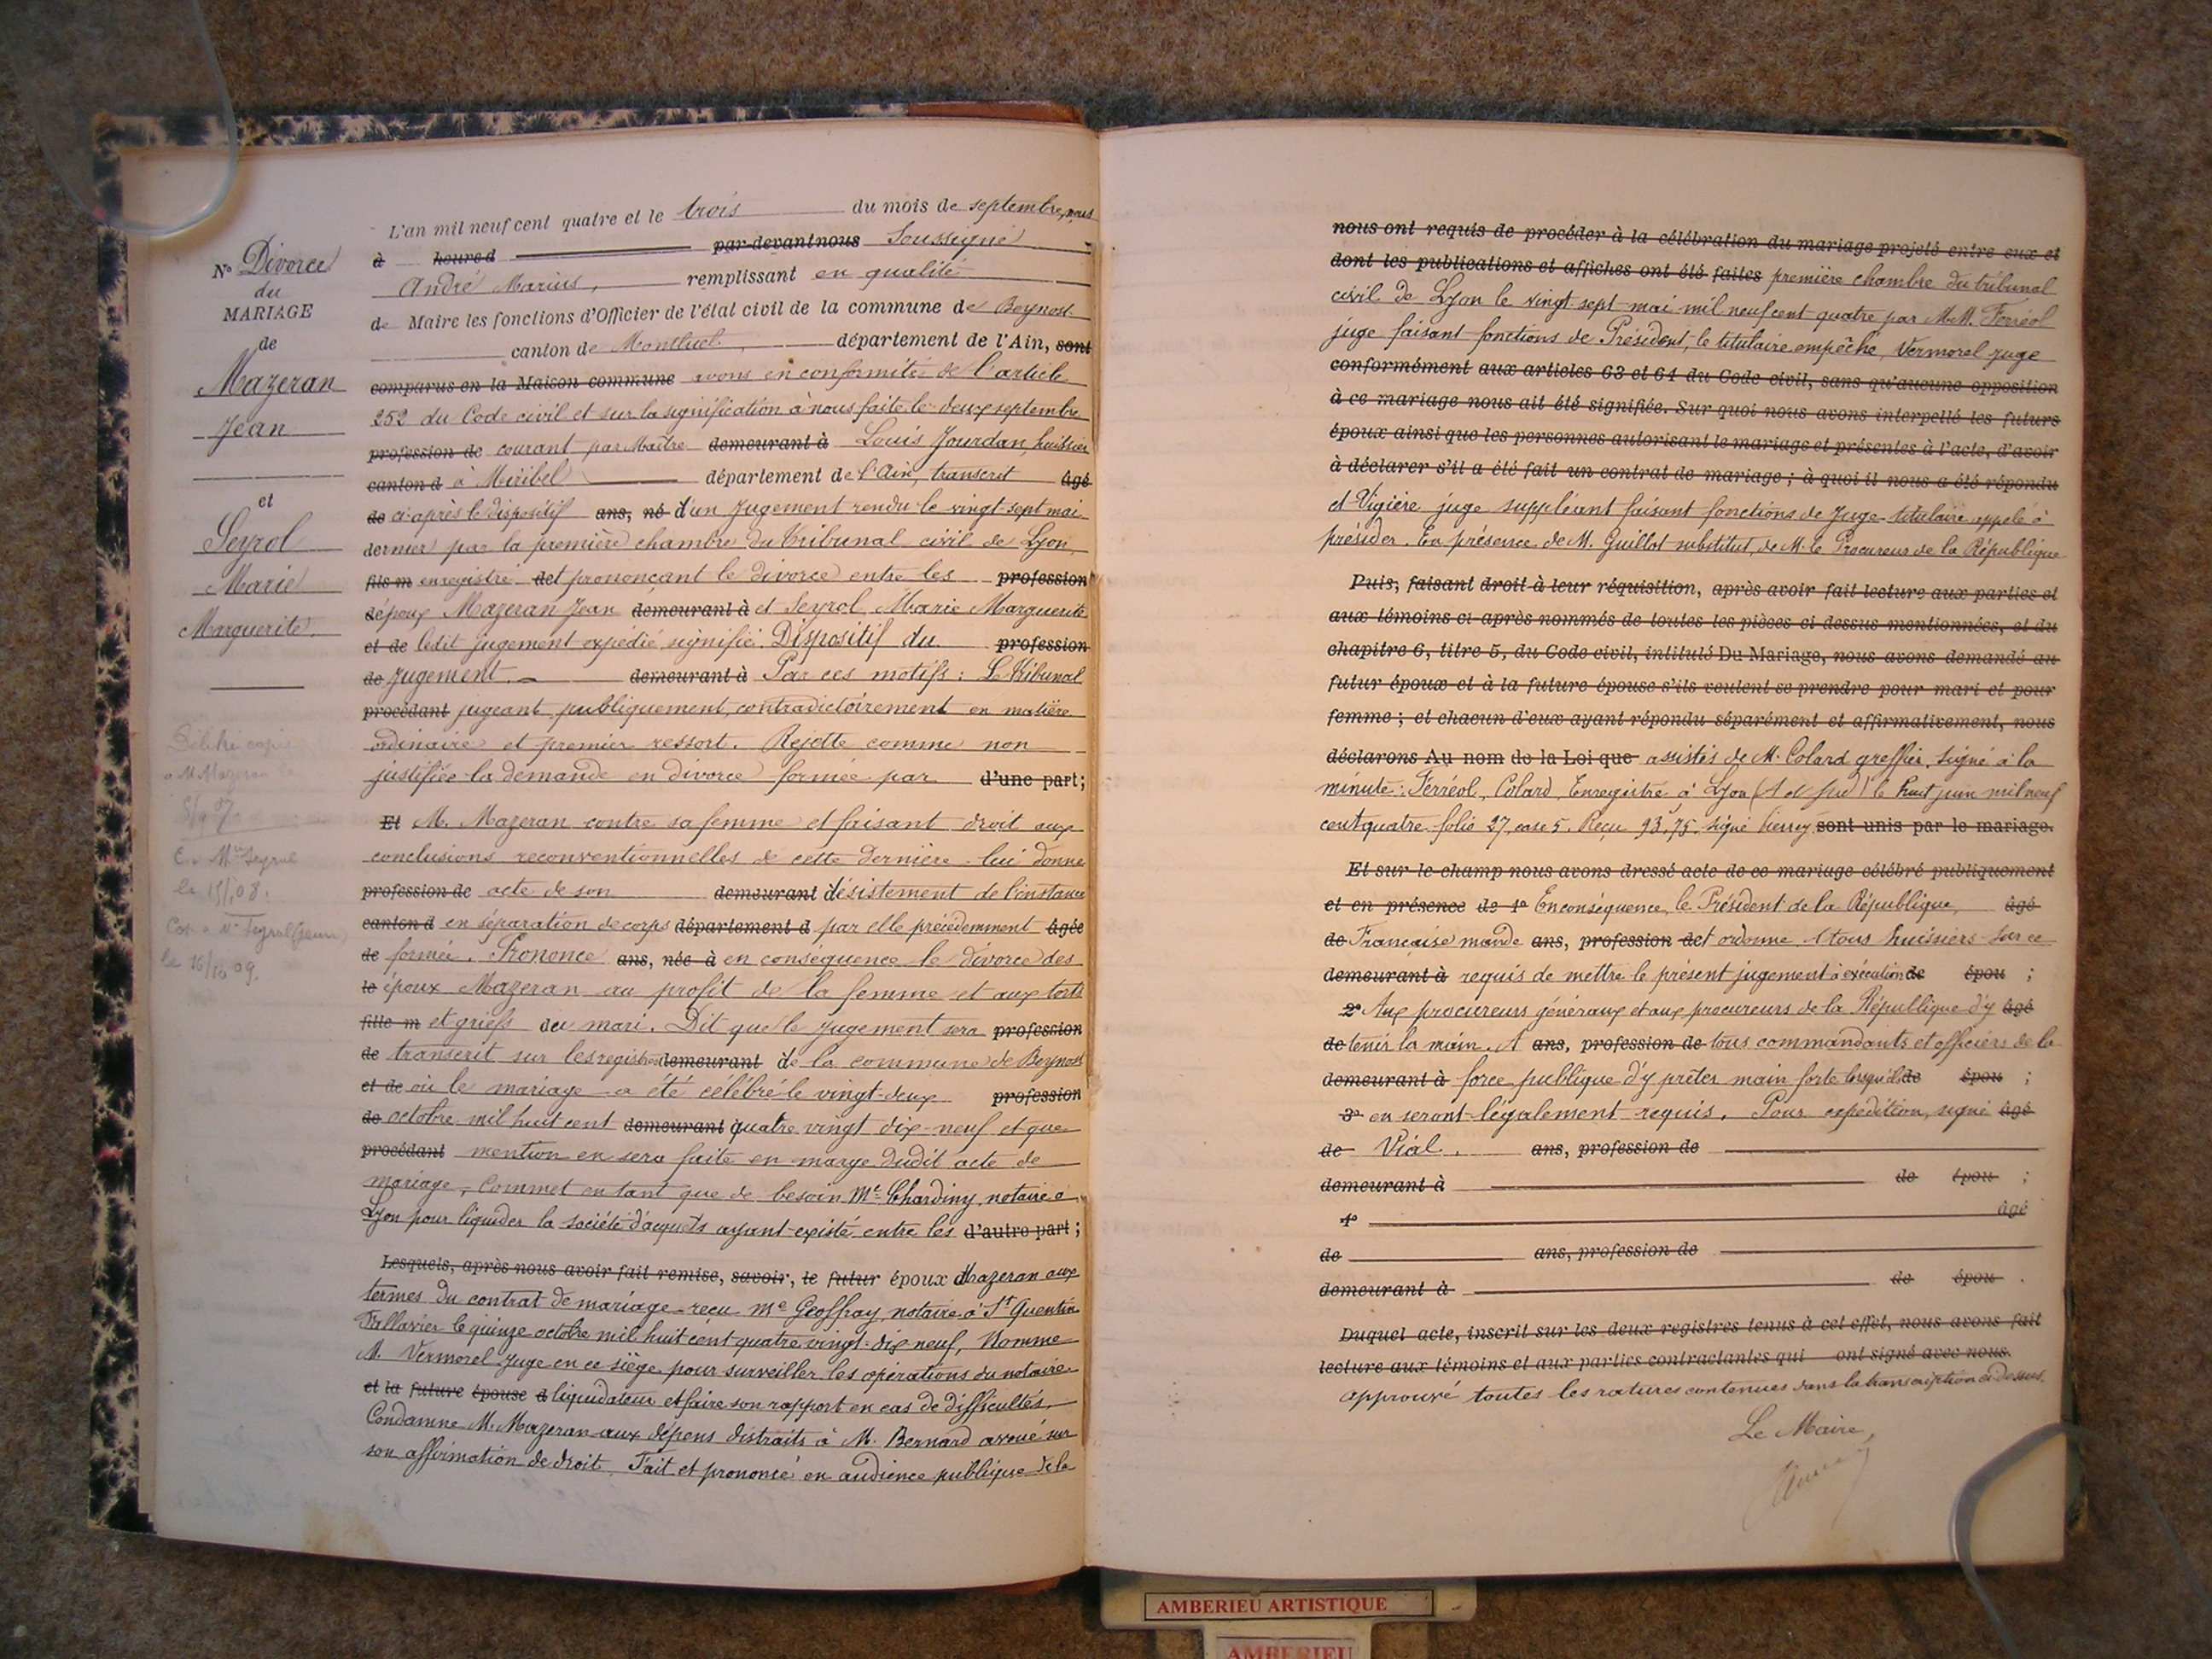 L'an mil neuf cent quatre et le trois du mois de septembre, nous
à heure d par-devant nous Soussigné
André Marius, remplissant en qualité
de Maire les fonctions d'Officier de l'état civil de la commune de Beynost
canton de Montluel, département de l'Ain, sont
comparus en la Maison commune avons en conformité de l'article
252 du Code civil et sur la signification à nous faite le deux septembre
profession de courant par Maître demeurant à Louis Jourdan, huissier
canton d à Miribel département de l'Ain, transcrit âgé
de ci-après le dispositif ans, né d'un Jugement rendu le vingt-sept mai
dernier par la première chambre du tribunal civil de Lyon,
fils m enregistré det prononçant le divorce entre les profession
de poux Mazeran Jean demeurant à et Seyrol Marie Marguerite
et de ledit jugement expedié signifié. Dispositif du profession
de jugement. demeurant à Par ces motifs : Le tribunal
procédant jugeant publiquement, contradictoirement en matière
ordinaire et premier ressort. Rejette comme non
justifiée la demande en divorce formée par d'une part;
Et M. Mazeran contre sa femme et faisant droit aux
conclusions reconventionnelles de cette dernière lui donne
profession de acte de son demeurant désistement de l'instance
canton d en séparation de corps département d par elle précédemment âgée
de formée. Prononce ans, née à en consequence le divorce des
le époux Mazeran au profit de la femme et aux torts
fille m et griefs du mari. Dit que le Jugement sera profession
de transcrit sur les registres demeurant de la commune de Beynost
et de où le mariage a été célébré le vingt-deux profession
de octobre mil huit cent demeurant quatre vingt dix-neuf et que
procédant mention en sera faite en marge dudit acte de
mariage, Commet en tant que de besoin Me Chardiny, notaire à
Lyon pour liquider la société d'acquets ayant existé entre les d'autre part;
Lesquels, après nous avoir fait remise, savoir, le futur époux Mazeran aux
termes du contrat de mariage reçu Me Geoffray, notaire à St Quentin
Fallavier le quinze octobre mil huit cent quatre vingt-dix neuf, Nomme
M. Vermorel Juge en ce siège pour surveiller les opérations du notaire
et la future épouse d liquidateur et faire son rapport en cas de difficultés.
Condamne M. Mazeran aux dépens distraits à M. Bernard avoué sur
son affirmation de droit. Fait et prononcé en audience publique de la
No Divorce
du
MARIAGE
de
Mazeran
Jean
et
Seyrol
Marie
Marguerite.
copie
Seyrol
le 16/10 09.
nous ont requis de procéder à la célébration du mariage projeté entre eux et
dont les publications et affiches ont été faites première chambre du tribunal
civil de Lyon le vingt-sept mai mil neuf cent quatre par M.M. Ferréol
juge faisant fonctions de Président, le titulaire empêché, Vermorel juge
conformément aux articles 63 et 64 du Code civil, sans qu'aucune opposition
à ce mariage nous ait été signifiée. Sur quoi nous avons interpellé les futurs
époux ainsi que les personnes autorisant le mariage et présentes à l'acte, d'avoir
à déclarer s'il a été fait un contrat de mariage ; à quoi il nous a été répondu
et Vigière juge suppléant faisant fonctions de Juge-titulaire appelé à
présider. En présence de M. Guillot substitut, de M. le Procureur de la République
Puis, faisant droit à leur réquisition, après avoir fait lecture aux parties et
aux témoins ci après nommés de toutes les pièces ci dessus mentionnées, et du
chapitre 6, titre 5, du Code civil, intitulé Du Mariage, nous avons demandé au
futur époux et à la future épouse s'ils veulent se prendre pour mari et pour
femme ; et chacun d'eux ayant répondu séparément et affirmativement, nous
déclarons Au nom de la Loi que assistés de M. Colard greffier, Signé à la
minute : Ferréol, Colard, Enregistré à Lyon le huit juin mil neuf
cent quatre folio 27, case 5. Reçu 93,75, signé Pierrey sont unis par le mariage.
Et sur le champ nous avons dressé acte de ce mariage célébré publiquement
et en présence de 1o En conséquence, le Président de la République, âgé
de Française mande ans, profession det ordonne A tous huissiers sur ce
demeurant à requis de mettre le présent jugement à exécution de épou ;
2o Aux procureurs généraux et aux procureurs de la République d'y âgé
de tenir la main. A ans, profession de tous commandants et officiers de la
demeurant à force publique d'y prêter main forte lorsqu'ils de épou ;
3o en seront légalement requis. Pour expédition, signé âgé
de Vial. ans, profession de
demeurant à de épou ;
4o âgé
de ans, profession de
demeurant à de épou .
Duquel acte, inscrit sur les deux registres tenus à cet effet, nous avons fait
lecture aux témoins et aux parties contractantes qui ont signé avec nous.
approuvé toutes les ratures contenues dans la transcription ci-dessus.
Le Maire,
AMBERIEU ARTISTIQUE
AMBERIEU